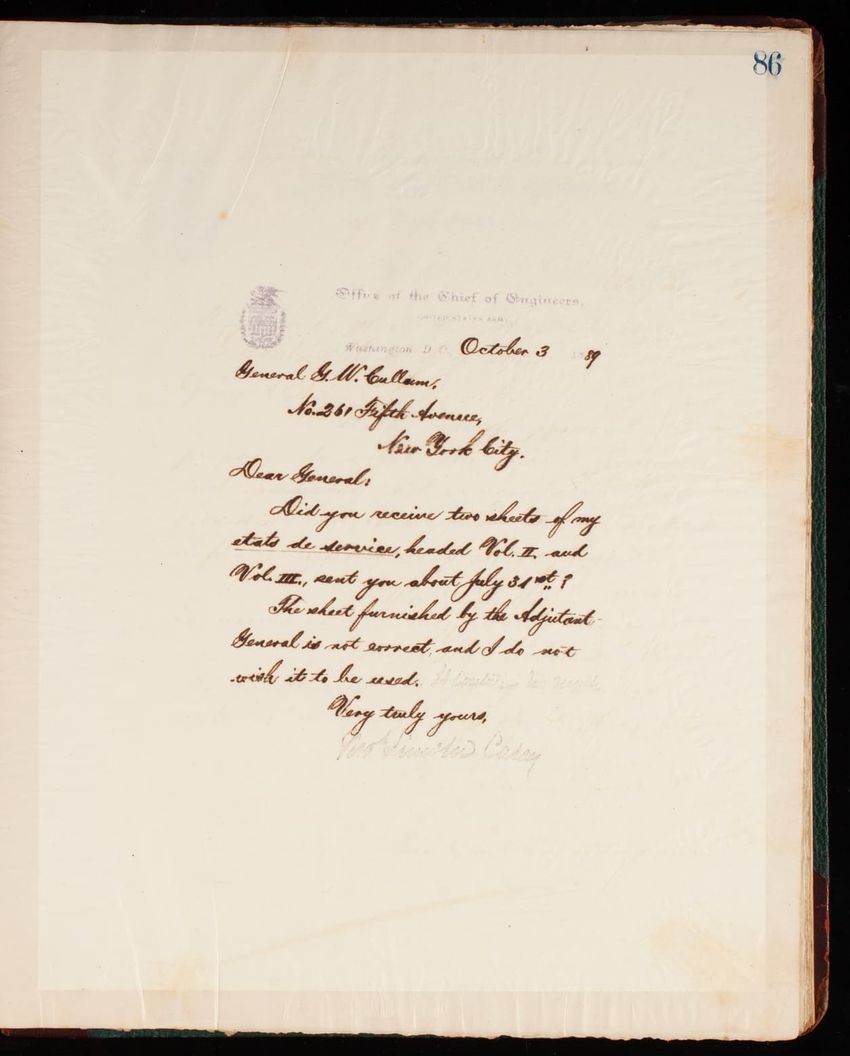 86
Office of the Chief of Engineers,
UNITED STATES ARMY
Washington, D.C. October 3 1889
General G. W. Cullum,
No. 261 Fifth Avenue,
New York City.
Dear General:
Did you receive two sheets of my
etats de service, headed Vol. II. and
Vol. III., sent you about July 31st.?
The sheet furnished by the Adjutant-
General is not correct, and I do not
wish it to be used.
Very truly yours,
Thos Lincoln Casey